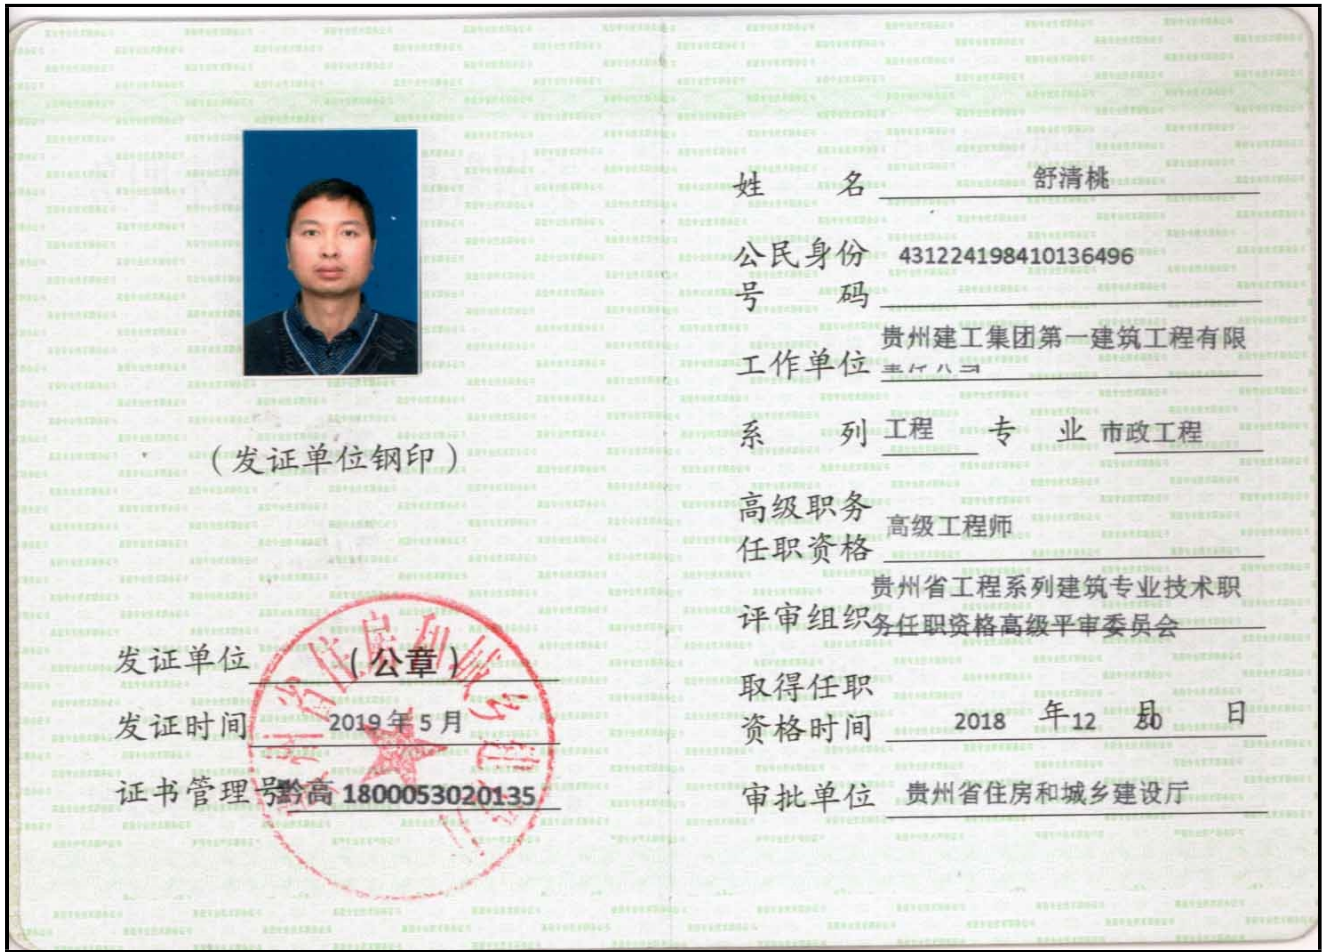 （发证单位钢印）
发证单位 （公章）
发证时间 2019 年 5 月
证书管理号黔高 1800053020135
姓 名 舒清桃
公民身份 431224198410136496
号 码
贵州建工集团第一建筑工程有限
工作单位 责任公司
系 列 工程 专 业 市政工程
高级职务
任职资格 高级工程师
贵州省工程系列建筑专业技术职
评审组织 务任职资格高级评审委员会
取得任职
资格时间 2018 年 12 月 30 日
审批单位 贵州省住房和城乡建设厅